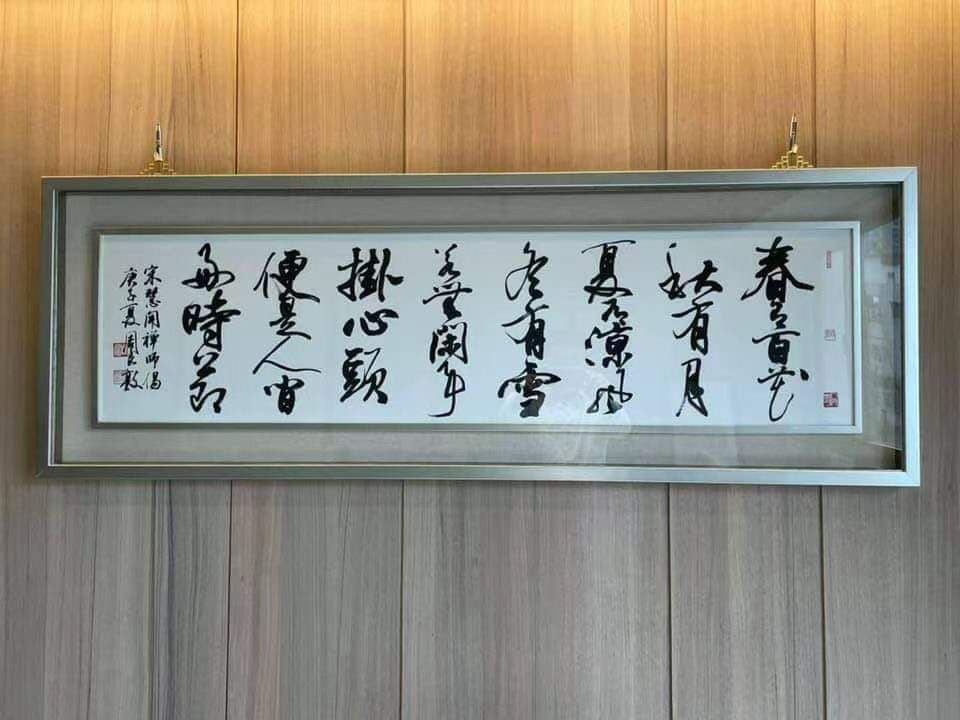 春有百花
秋有月
夏有涼風
冬有雪
若無閑事
掛心頭
便是人間
好時節
宋慧開禪師偈
庚子夏 周